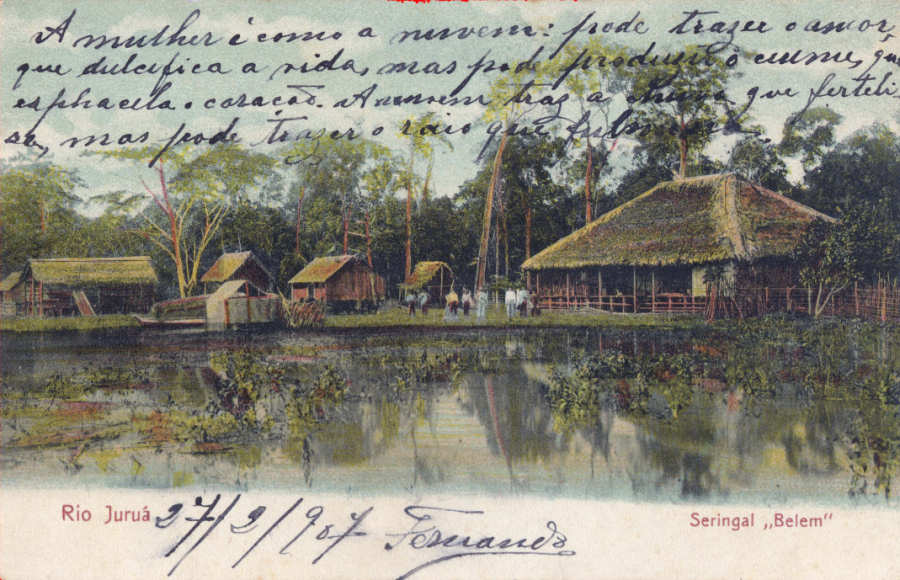 A mulher é como a nuvem: pode trazer o amor,
que dulcifica a vida, mas pode produzir o ciume, que
esphacela o coração. A nuvem traz a chuva que fertili-
sa, mas pode trazer o raio que fulmina
Rio Juruá 27/2/907 Fernando Seringal „Belem"